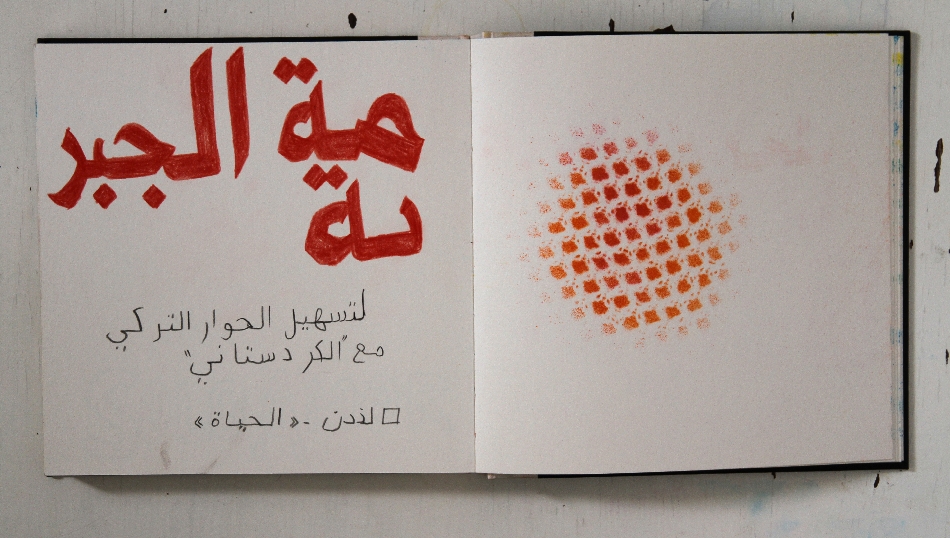 صية الجبر
ىة
لتسهيل الحوار التركي
مع "الكردستاني"
□ لندن - «الحياة»